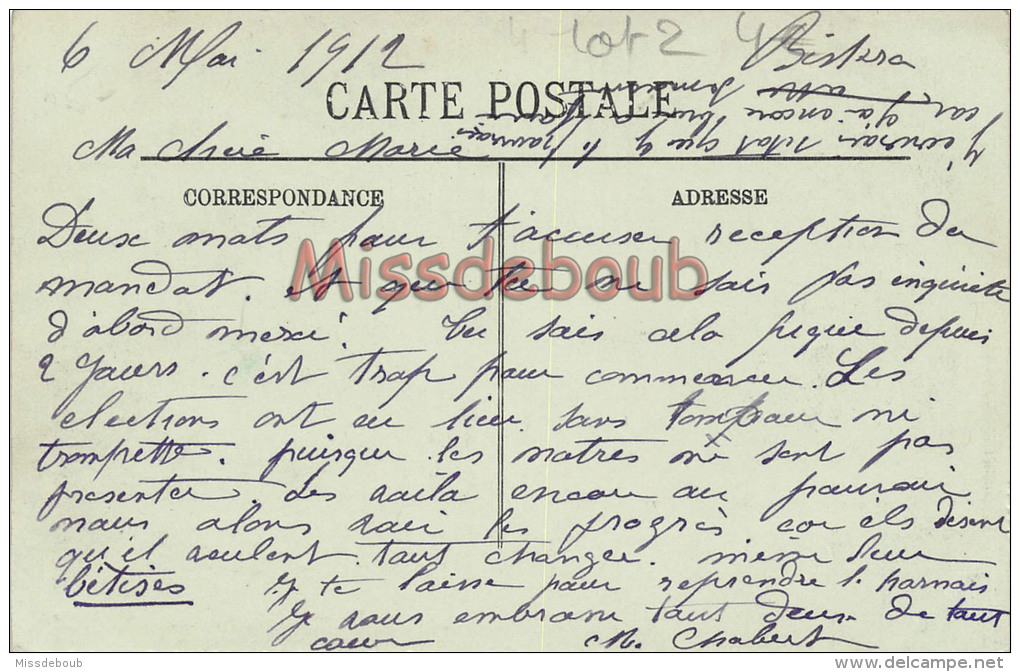 4 lot 2 4
6 Mai 1912 Biskra
CARTE POSTALE
Ma chère Marie
J'écrirai sitot que j'
car j'ai encore
CORRESPONDANCE
ADRESSE
Deux mots pour t'accuser reception du
mandat. et que tu ne sois pas inquiete
d'abord merci! Tu sais cela pique depuis
2 Jours. c'est trop pour commencer. Les
elections ont eu lieu sans tambour ni
trompette. puisque les notres ne sont pas
presenter. Les voila encore au pouvoir
nous alons voir les progrès car els disent
qu'il veulent tout changer. même leur
bêtises Je te laisse pour reprendre le harnais
Je vous embrasse tout deux de tout
coeur M. Chabert
Missdeboub
Missdeboub
www.delcampe.net